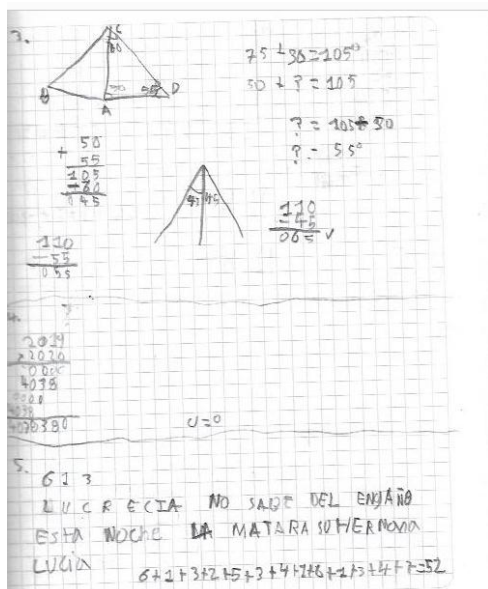 3.
C
60
B
A
D
50
55
75 + 30 = 105°
50 + ? = 105
? = 105 - 50
? = 55°
+ 50
55
105
- 60
045
45
110
- 45
065 ✓
110
- 55
055
4.
2019
x 2020
0000
4038
0000
4038
4078380
U = 0
5.
6 1 3
LUCRECIA NO SABE DEL ENGAÑO
ESTA NOCHE LA MATARA SU HERMANA
LUCIA
6+1+3+2+5+3+4+7+6+1+3+4+7=52